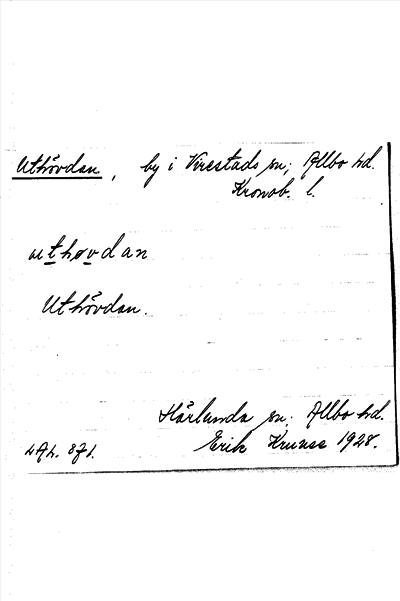 Uthövdan, by i Virestads sn; Allbo hd.
Kronob. l.
uthøvdan
Uthövdan.
Härlunda sn; Allbo hd.
Erik Kruuse 1928.